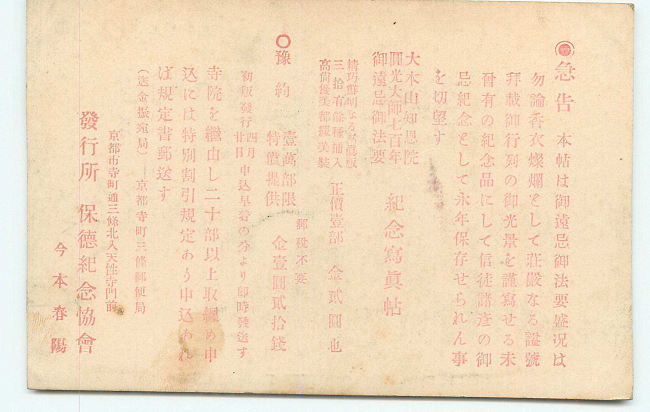 急告 本帖は御遠忌御法要盛況は
勿論香衣燦爛として荘厳なる諡號
拜載御行列の御光景を謹寫せる未
曾有の紀念品にして信徒諸彦の御
忌紀念として永年保存せられん事
を切望す
大本山知恩院
圓光大師七百年
御遠忌御法要
紀念寫眞帖
精巧鮮明なる寫眞版
三拾有餘種挿入
高尚優美都羅美裝
正價壹部 金貳圓也
郵税不要
豫約
壹萬部限
特價提供
金壹圓貳拾錢
初版發行四月廿日申込早着の分より即時發送す
寺院を經由し二十部以上取纏め申
込には特別割引規定あり申込あれ
ば規定書郵送す
(送金振宛局)―京都寺町三條郵便局
京都市寺町通三條北入天性寺門前
發行所 保德紀念協會
今本春陽